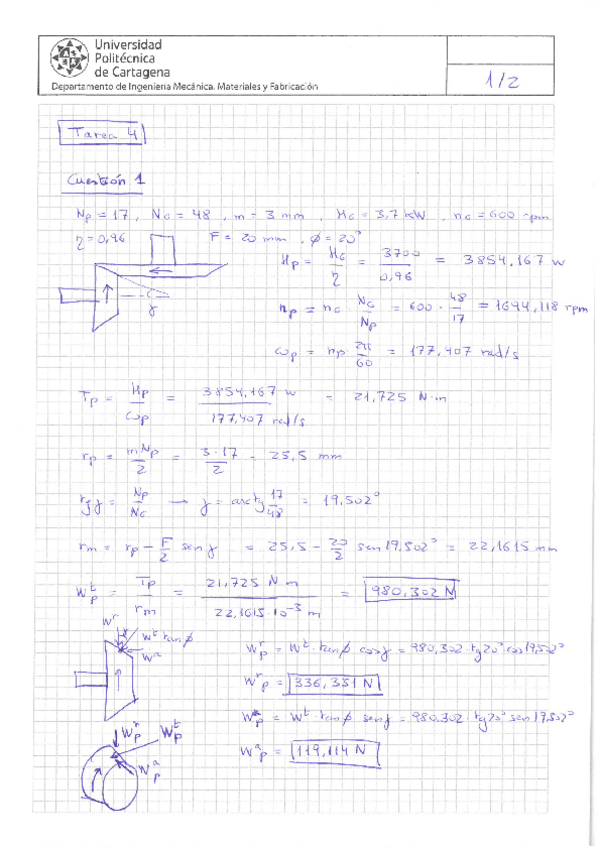 Universidad
Politécnica
de Cartagena
Departamento de Ingeniería Mecánica, Materiales y Fabricación
1/2
Tarea 4
Cuestión 1
Np = 17, NG = 48, m = 3 mm, HG = 3,7 kW, nG = 600 rpm
η = 0,96 F = 20 mm, ϕ = 20°
γ
Hp = HG/η = 3700/0,96 = 3854,167 w
np = nG NG/Np = 600 · 48/17 = 1694,118 rpm
ωp = np 2π/60 = 177,407 rad/s
Tp = Hp/ωp = 3854,167 w / 177,407 rad/s = 21,725 N·m
rp = m Np/2 = 3·17/2 = 25,5 mm
tg γ = Np/NG → γ = arctg 17/48 = 19,502°
rm = rp − F/2 sen γ = 25,5 − 20/2 sen 19,502° = 22,1615 mm
Wp^t = Tp/rm = 21,725 N m / 22,1615·10^-3 m = 980,302 N
W^r
W^t tan ϕ
W^a
Wp^r = W^t · tan ϕ cos γ = 980,302 · tg 20° cos 19,502°
Wp^r = 336,331 N
Wp^a = W^t · tan ϕ sen γ = 980,302 · tg 20° sen 19,502°
Wp^a = 119,114 N
Wp^r Wp^t
Wp^a